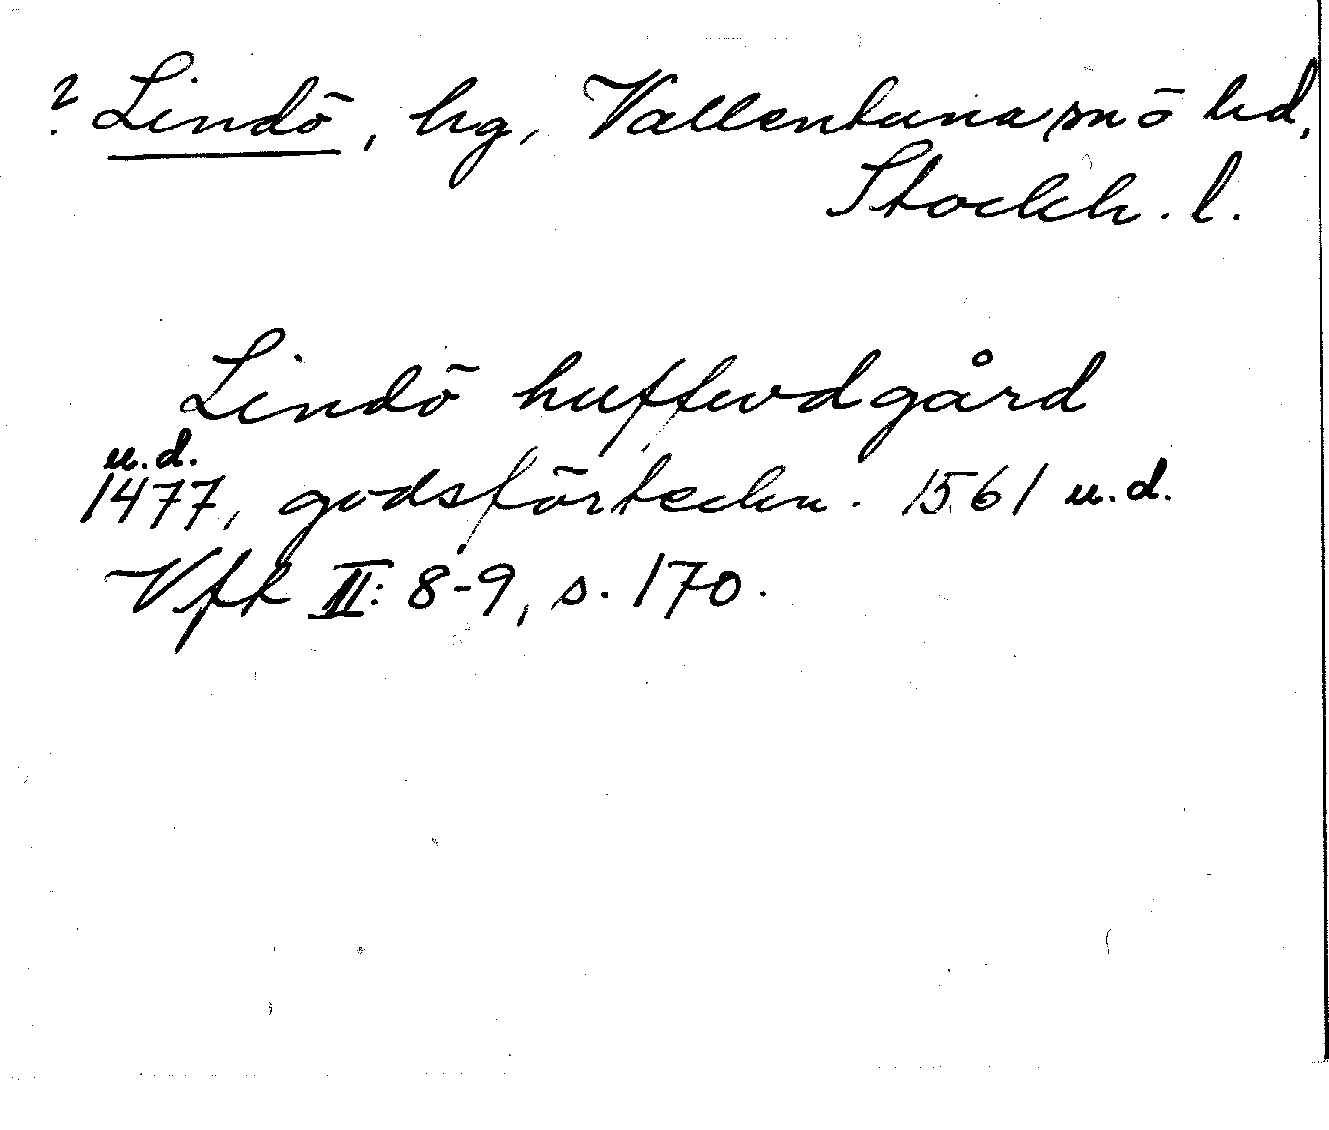 ? Lindö, hg, Vallentuna sn o hd,
Stockh. l.
Lindö huffwdgård
u.d.
1477, godsförteckn. 1561 u.d.
Vfk II: 8-9, s. 170.